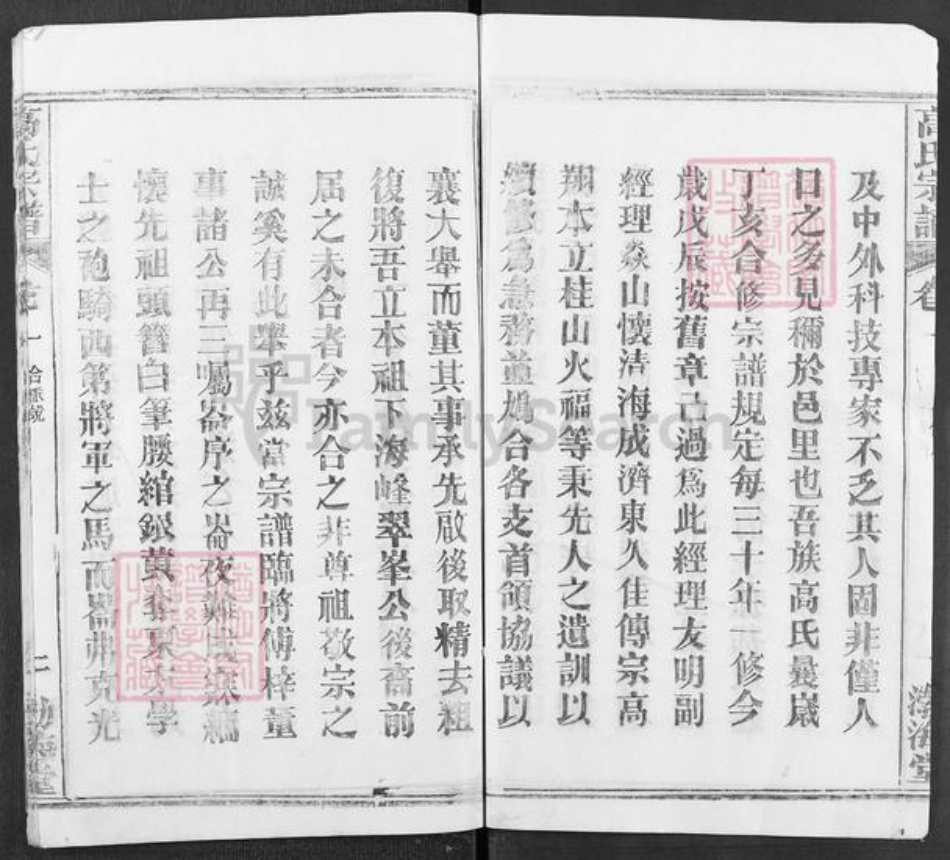 高氏宗譜
及中外科技專家不乏其人固非僅人
日之多見稱於邑里也吾族高氏曩歲
丁亥合修宗譜規定每三十年一修今
歲戊辰按舊章已過為此經理友明副
經理焱山懷清海成濟東久佳傳宗高
翔本立桂山火福等秉先人之遺訓以
續為急務並鳩合各支首領協議以
襄大舉而董其事承先啟後取精去粗
復將吾立本祖下海峰翠峯公後裔前
屆之未合者今亦合之非尊祖敬宗之
誠奚有此舉乎茲當宗譜臨將傅梓董
事諸公再三囑崙序之崙夜難
懷先祖頭簪白筆腰綰銀黃學
士之砲騎西第將軍之馬而崙弗克光
高氏宗譜
卷一
二
渤海堂
FamilySearch